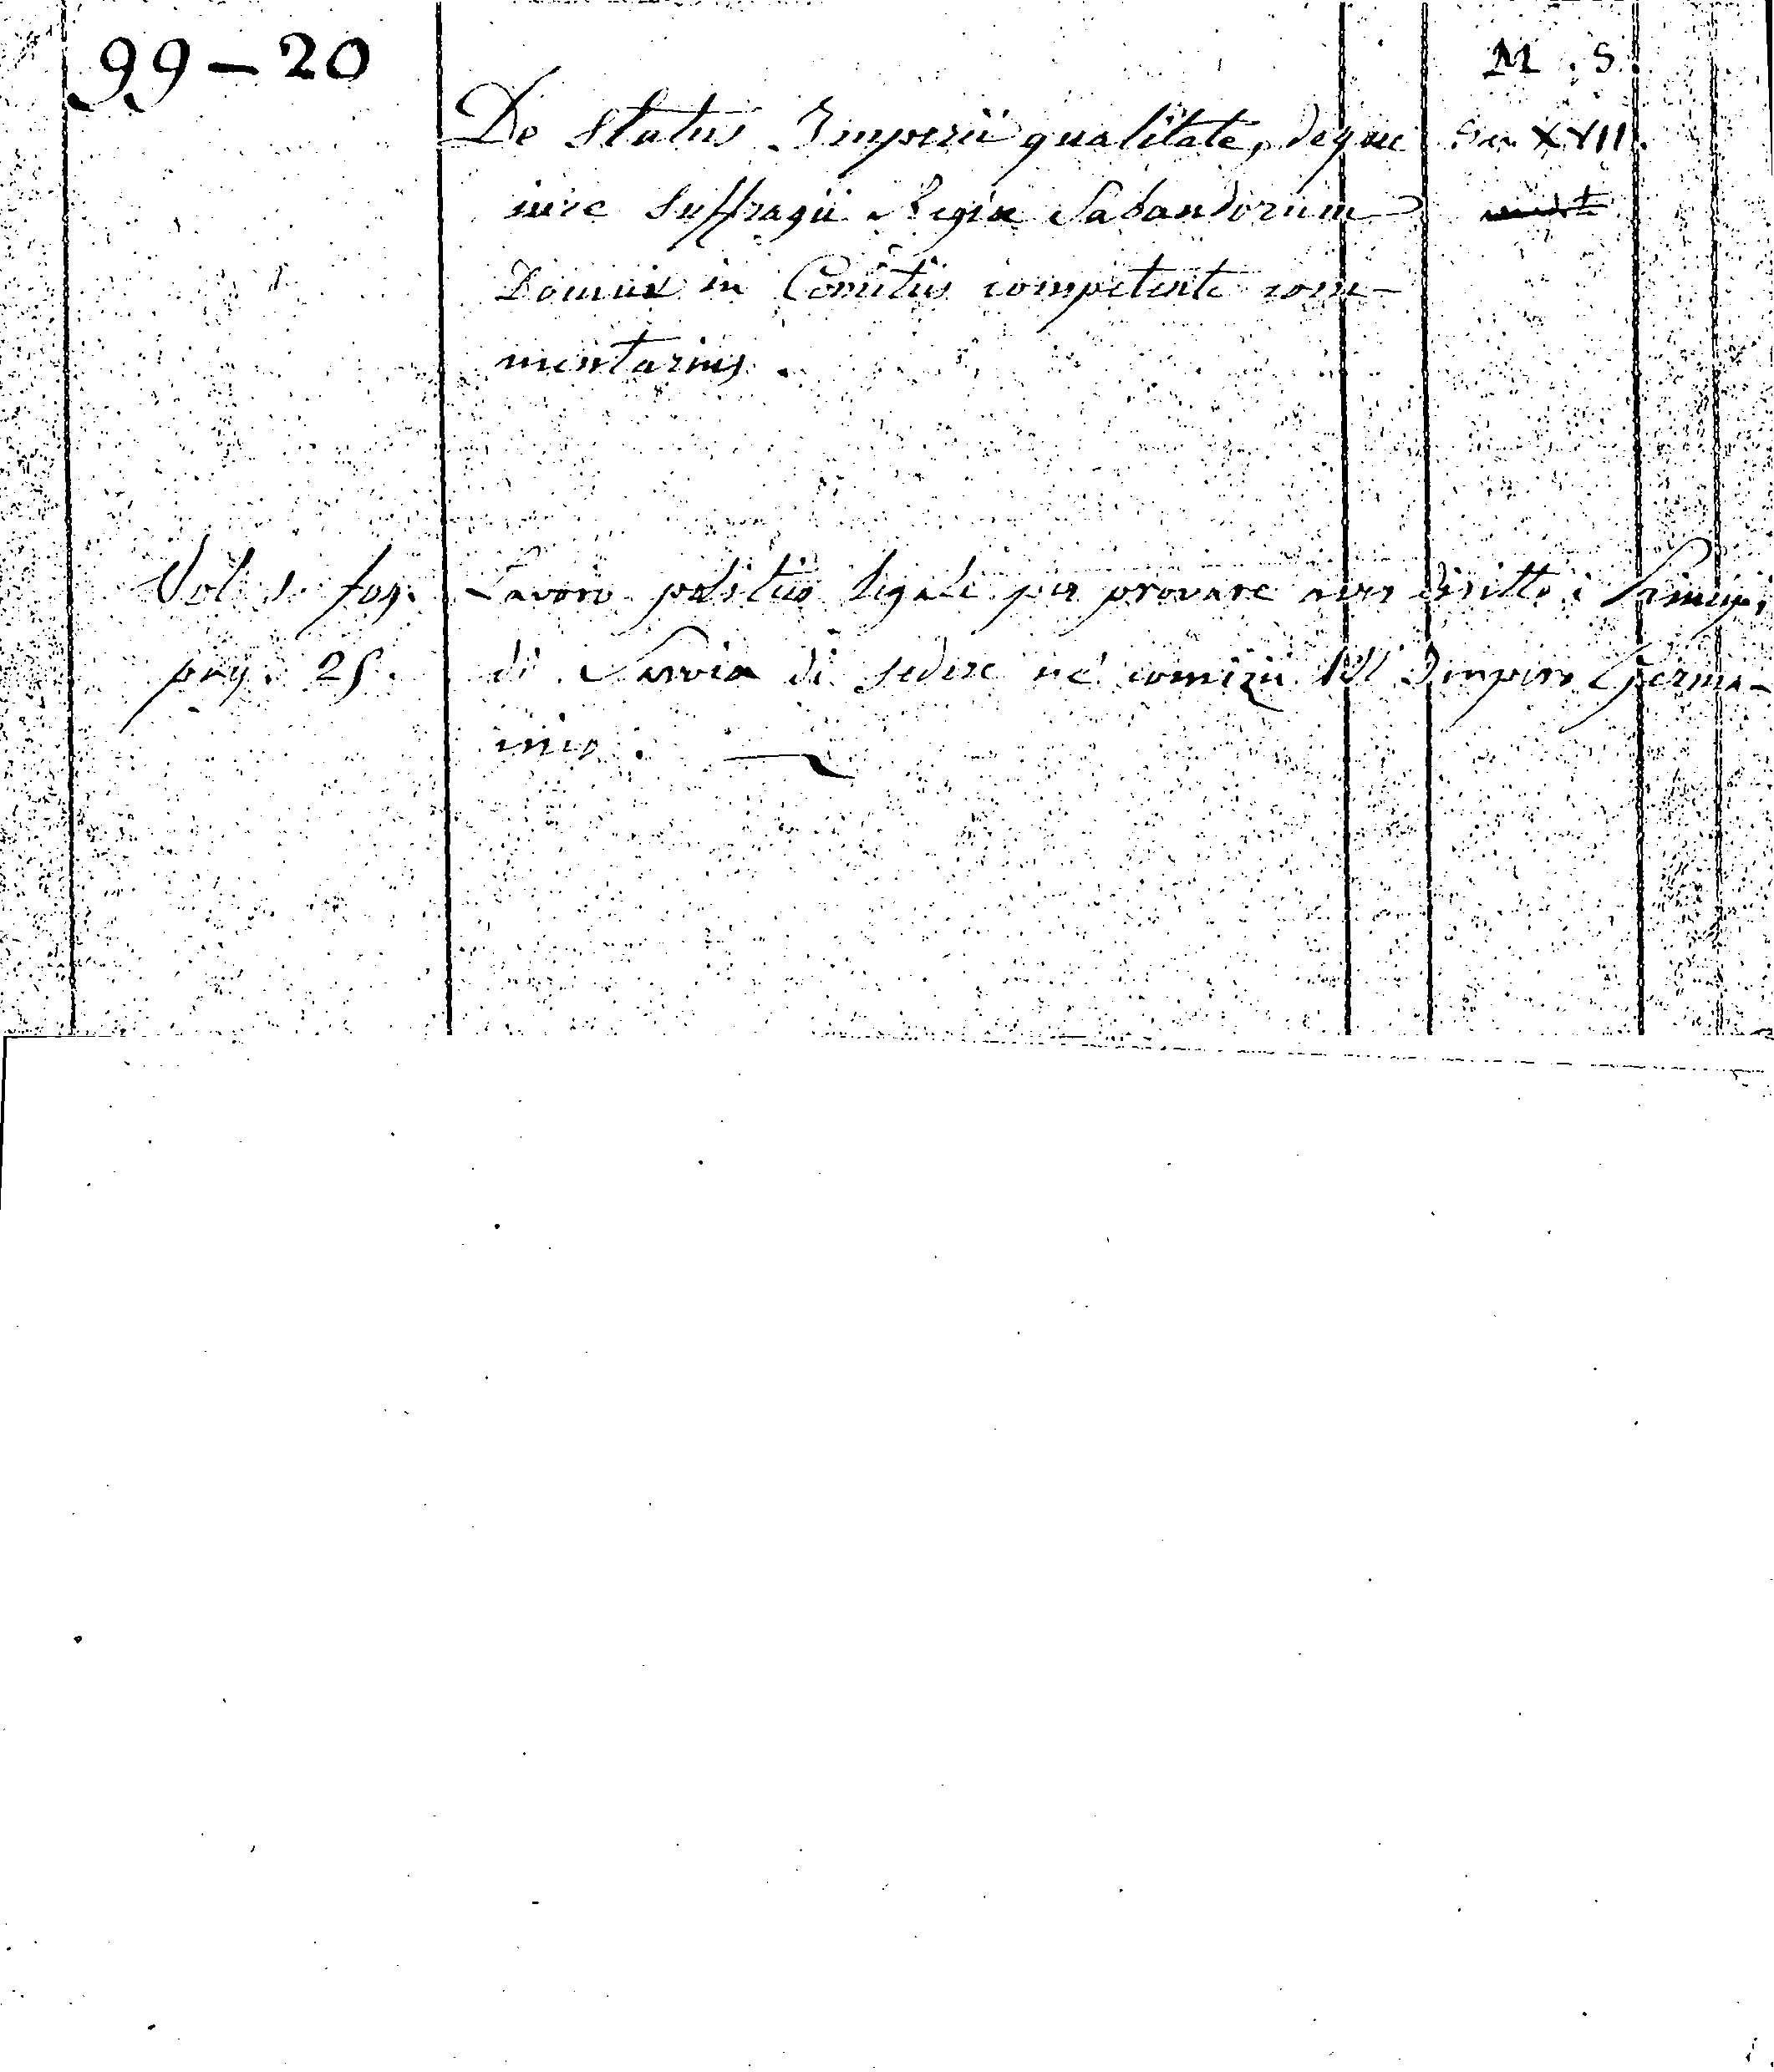 99 – 20
M. S.
De Status Imperii qualitate, deque
Sec XVII.
iure suffragii Regiæ Sabaudorum
Domus in Comitiis competente com-
mentarius.
Vol. fog.
Lavoro politico legale per provare aver diritto i Principi
pag. 25.
di Savoia di sedere ne' comizii dell' Impero Germa-
nico.